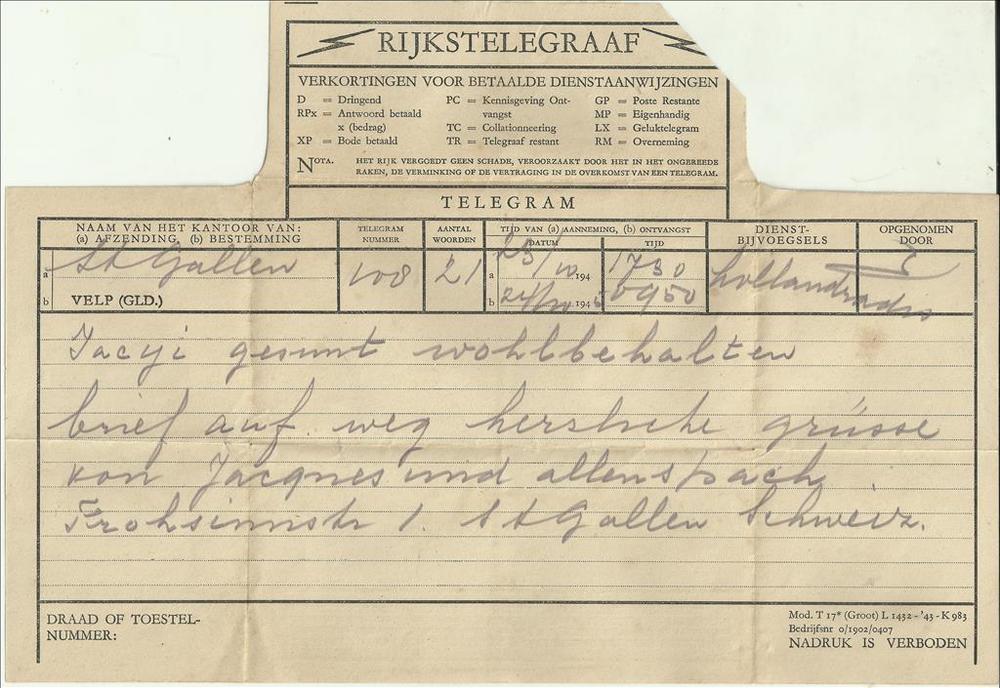 RIJKSTELEGRAAF
VERKORTINGEN VOOR BETAALDE DIENSTAANWIJZINGEN
D = Dringend
RPx = Antwoord betaald
x (bedrag)
XP = Bode betaald
PC = Kennisgeving Ont-
vangst
TC = Collationneering
TR = Telegraaf restant
GP = Poste Restante
MP = Eigenhandig
LX = Geluktelegram
RM = Overneming
NOTA. HET RIJK VERGOEDT GEEN SCHADE, VEROORZAAKT DOOR HET IN HET ONGEREEDE
RAKEN, DE VERMINKING OF DE VERTRAGING IN DE OVERKOMST VAN EEN TELEGRAM.
TELEGRAM
NAAM VAN HET KANTOOR VAN:
(a) AFZENDING, (b) BESTEMMING
TELEGRAM
NUMMER
AANTAL
WOORDEN
TIJD VAN (a) AANNEMING, (b) ONTVANGST
DATUM
TIJD
DIENST-
BIJVOEGSELS
OPGENOMEN
DOOR
a St Gallen 108 21 a 23/10 194 1730
b VELP (GLD.) b 24/10 194 0950
hollandradio
Jacyi gesunt wohlbehalten
brief auf weg herzliche grüsse
von Jacques und allenspach
Frohsinnstr 1. St Gallen Schweiz.
DRAAD OF TOESTEL-
NUMMER:
Mod. T 17* (Groot) L 1432 - '43 - K 983
Bedrijfsnr 0/1902/0407
NADRUK IS VERBODEN